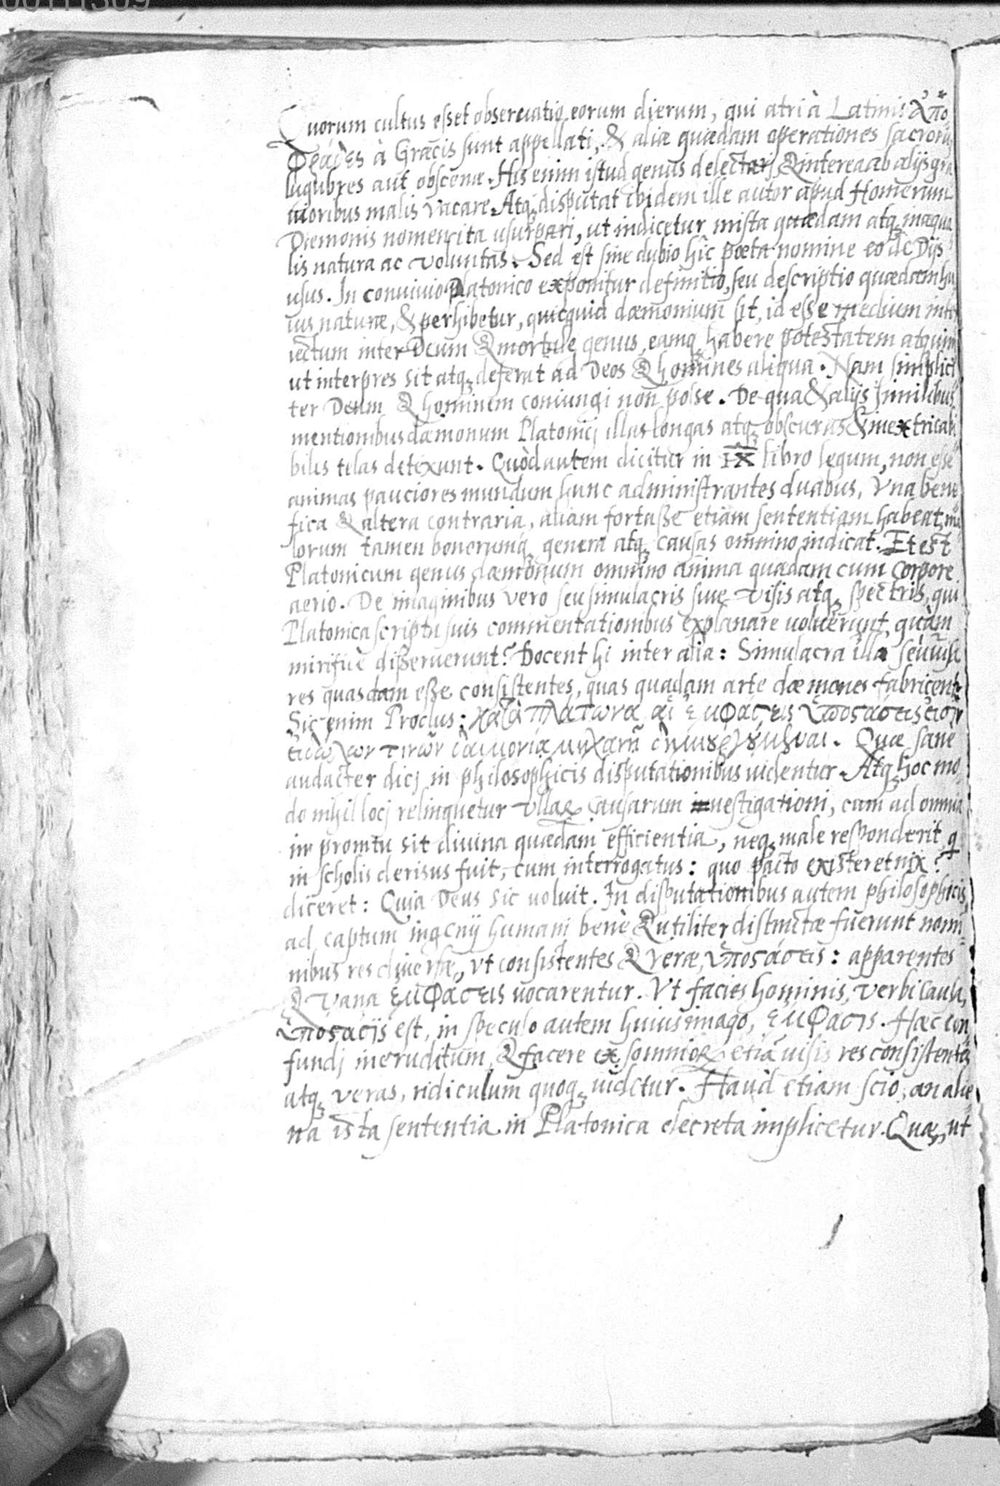 00111309
Quorum cultus esset observatio eorum dierum, qui atri à Latinis ἀπο
φράδες à Græcis sunt appellati, & aliæ quædam operationes sacrorū
lugubres aut obscenæ. His enim istud genus delectari, & interea ab alijs gra
vioribus malis vacare. Atq; disputat ibidem ille autor apud Homerum
Dæmonis nomen ita usurpari, ut indicetur mista quædam atq; inæqua
lis natura ac voluntas. Sed est sine dubio hîc poëta nomine eo de Dijs
usus. In convivio Platonico exponitur definitio, seu descriptio quædam hu
ius naturæ, & perhibetur, quicquid dæmonium sit, id esse medium inter
iectum inter Deum & mortale genus, eamq; habere potestatem atq; vim
ut interpres sit atq; deferat ad Deos & homines aliqua. Nam simplici
ter Deum & hominem coniungi non posse. De qua & alijs similibus
mentionibus dæmonum Platonicj illas longas atq; obscuras & inextricabi
biles telas detexunt. Quòd autem dicitur in IX libro legum, non esse
animas pauciores mundum hunc administrantes duabus, Vna bene
fica & altera contraria, aliam fortasse etiam sententiam habeat, ma
lorum tamen bonorumq; genera atq; causas omnino indicat. Et est
Platonicum genus dæmonum omnino anima quadam cum corpore
aerio. De imaginibus vero seu simulacris sive visis atq; spectris, qui
Platonica scripta suis commentationibus explanare voluerunt, quàm
mirificè disseruerunt? Docent hi inter alia: Simulacra illa seu visa
res quasdam esse consistentes, quas quadam arte dæmones fabricent.
Sic enim Proclus: κατὰ πλάτωνα αἱ ἐμφάσεις ὑποστάσεις εἰσὶν
εἰδώλων τινῶν δαιμονίᾳ μηχανῇ δημιουργούμεναι. Quæ sanè
audacter dicj in philosophicis disputationibus videntur. Atq; hoc mo
do nihil locj relinquetur vllæ causarum investigationi, cum ad omnia
in promtu sit divina quædam efficientia, neq; male responderit q
in scholis derisus fuit, cum interrogatus: quo pacto existeret nix?
diceret: Quia Deus sic voluit. In disputationibus autem philosophicis
ad captum ingenij humani benè & utiliter distinctæ fuerunt nomi
nibus res diversæ, vt consistentes & veræ, ὑποστάσεις: apparentes
& vana ἐμφάσεις vocarentur. Vt facies hominis, verbi causa,
ὑπόστασις est, in speculo autem huius imago, ἔμφασις. Hæc con
fundj ineruditum, & facere ex somnior; etiā visis res consistentes
atq; veras, ridiculum quoq; videtur. Haud etiam scio, an alie
na ista sententia in Platonica decreta implicetur. Quæ, ut